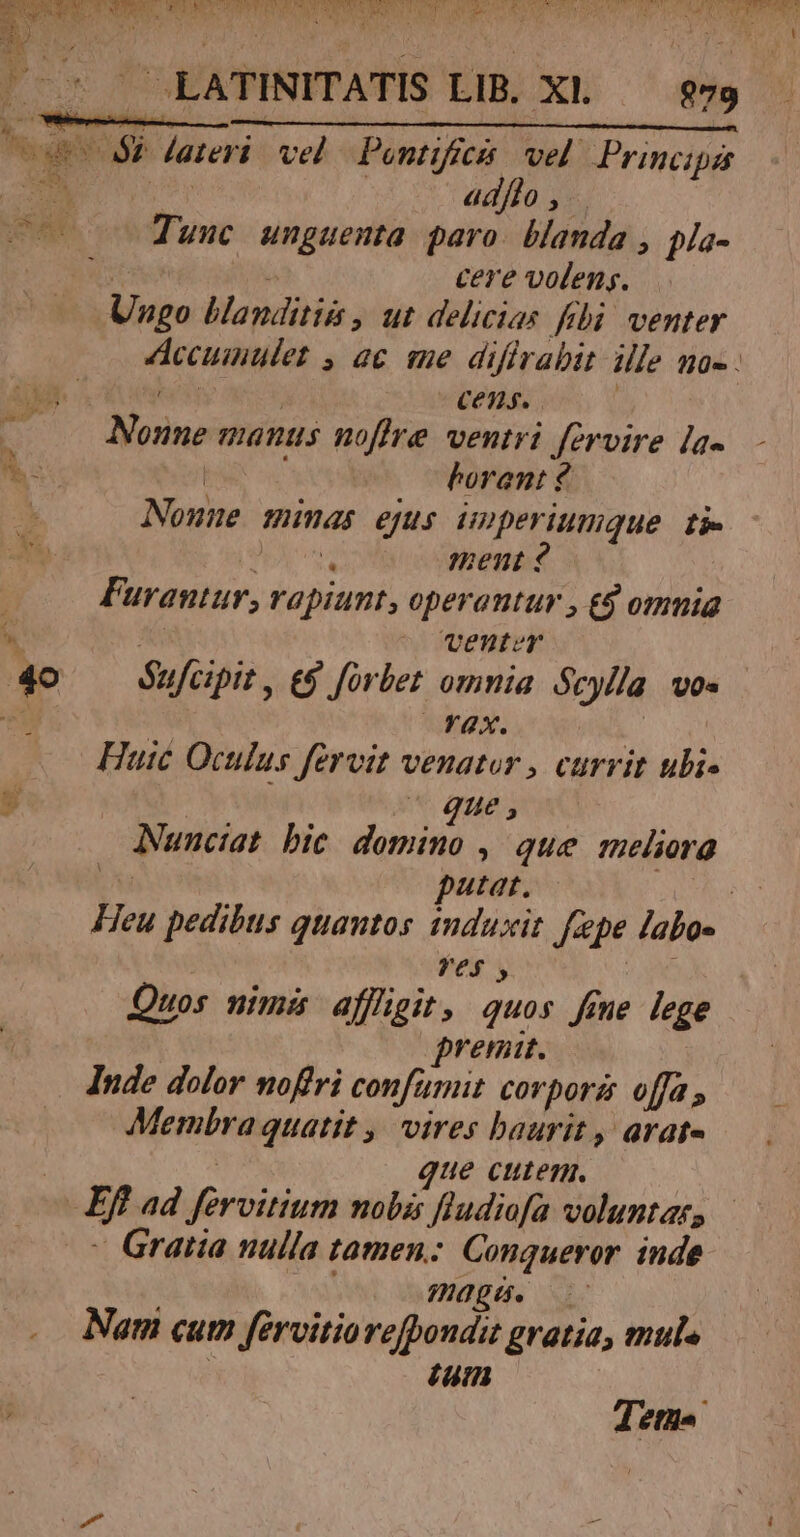 LATINITATIS LIB. XI. 879
Si lateri vel Pontificis vel Principis
adſto,
Tunc unguenta paro blanda, pla-
cere volens.
Ungo blanditiis, ut delicias ſibi venter
Accumulet, ac me diſtrabit ille no-
cens.
Nonne manus noſtræ ventri ſervire la-
borant?
Nonne minas ejus imperiumque ti-
ment?
Furantur, rapiunt, operantur, & omnia
venter
40 Suſcipit, & ſorbet omnia Scylla vo-
rax.
Huic Oculus ſervit venator, currit ubi-
que,
Nunciat hic domino, quæ meliora
putat.
Heu pedibus quantos induxit ſæpe labo-
res,
Quos nimis affligit, quos ſine lege
premit.
Inde dolor noſtri conſumit corporis oſſa,
Membra quatit, vires haurit, arat-
que cutem.
Eſt ad ſervitium nobis ſtudioſa voluntas,
Gratia nulla tamen: Conqueror inde
magis.
Nam cum ſervitio reſpondit gratia, mul-
tum
Tem-